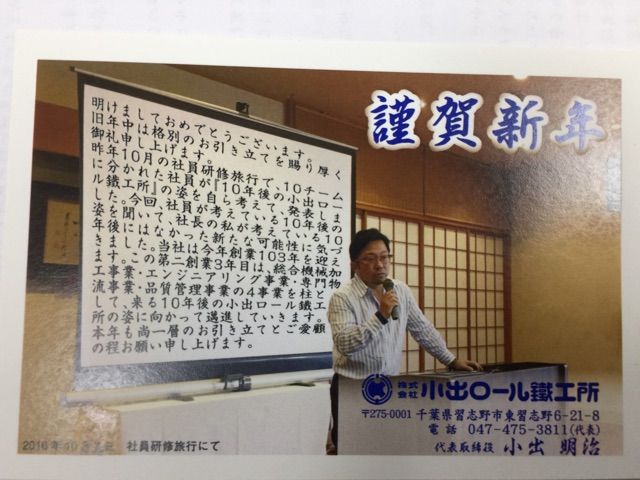 謹賀新年
明けましておめでとうございます。
旧年中は格別のお引き立てを賜り厚く
御礼申し上げます。
昨年10月の社員研修旅行で、10チーム
に分かれた社員が『10年後の小出ロー
ル鐵工所』の姿を自ら考えて発表しま
した。今回、社員が考えている10年後の
姿を聞いて、社長の私が考えている10
年後にはなかった新たな可能性に気づ
きました。当社は今年創業103年を迎え
ます。この第二創業3年目は、統合機械加
工事業・エンジニアリング事業・専門物
流事業・品質管理事業の4事業を柱と
して、来る10年後の小出ロール鐵工
所の姿に向かって邁進していきます。
本年も尚一層のお引き立てとご愛顧
の程お願い申し上げます。
株式会社 小出ロール鐵工所
〒275-0001 千葉県習志野市東習志野6-21-8
電話 047-475-3811(代表)
代表取締役 小出 明治
社員研修旅行にて